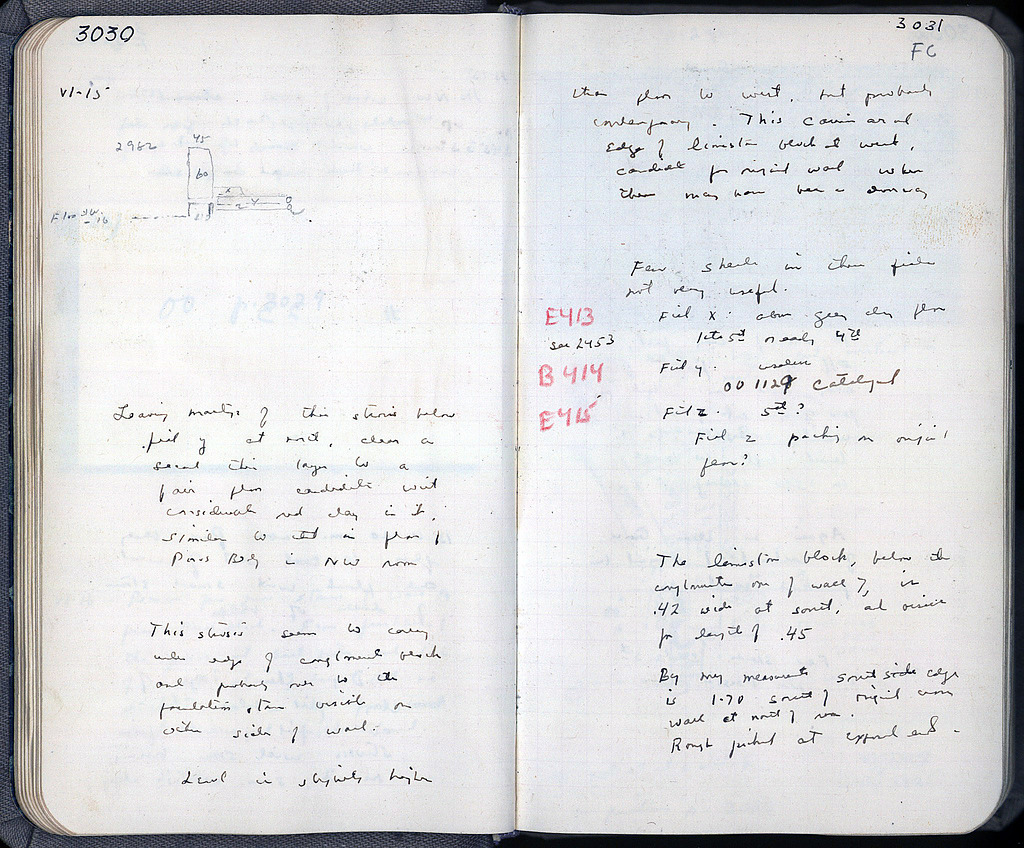 3030
VI-15
45
2982
60
X
Y
Z
Floor
-16
Leaving most of this strosis below
field y at north, clear a
second thin layer to a
fair floor candidate with
considerable red clay in it,
similar to that in floor of
Poros Bldg in NW room
This strosis seems to carry
under edge of conglomerate block
and probably over to the
foundation stone visible on
other side of wall.
Level is slightly higher
3031
FC
than floor to west, but probably
contemporary. This carries around
edge of limestone block at west,
candidate for original wall where
there may have been a doorway
Few sherds in these fields
not very useful.
E413 Field X: above grey clay floor
see 2453 late 5th nearly 4th
B414 Field y: useless
001129 catalogued
E415 Field Z: 5th?
Field z packing on original
floor?
The limestone block, below the
conglomerate one of wall 7, is
.42 wide at south, and visible
for length of .45
By my measurements south side edge
is 1.70 south of original cross
wall at north of room.
Rough picked at exposed end.